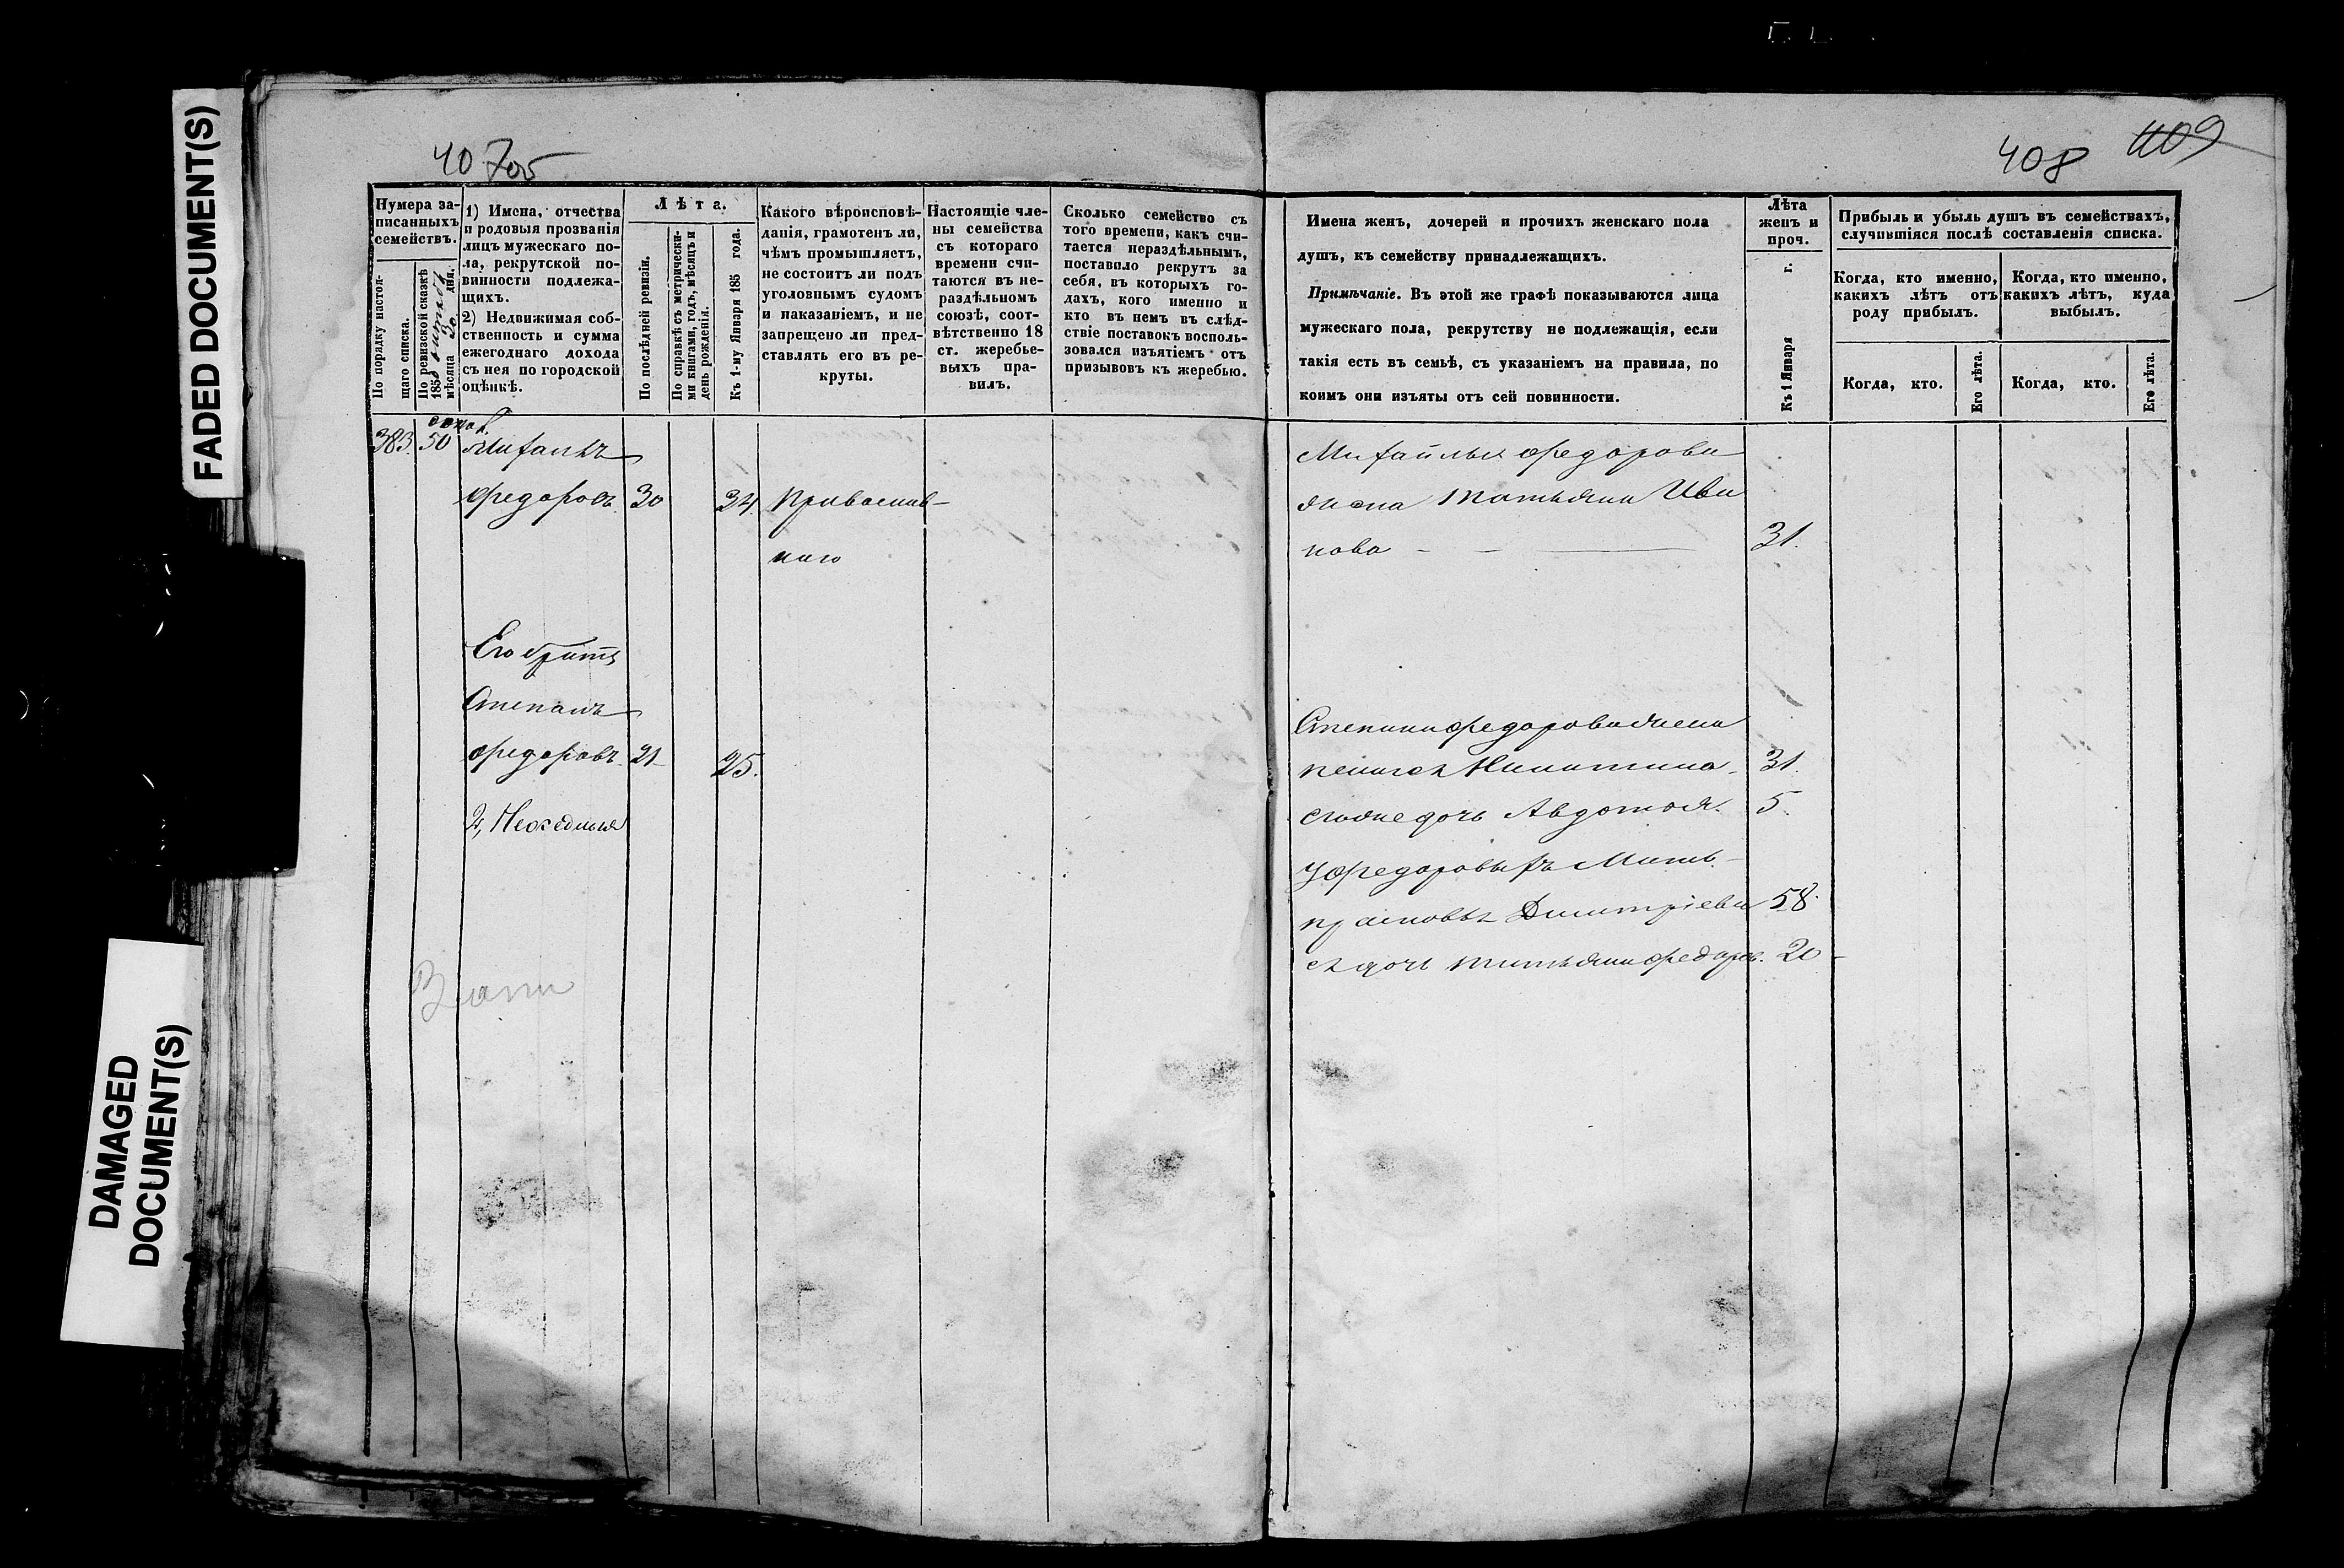 FADED DOCUMENT(S)
DAMAGED
DOCUMENT(S)
408
409
Нумера за-
писанныхъ
семействъ.
По порядку настоя-
щаго списка.
По ревизской сказкѣ
185
мѣсяца дня.
1) Имена, отчества
и родовыя прозванія
лицъ мужескаго по-
ла, рекрутской по-
винности подлежа-
щихъ.
2) Недвижимая соб-
ственность и сумма
ежегоднаго дохода
съ нея по городской
оцѣнкѣ.
Лѣта.
По послѣдней ревизіи.
По справкѣ съ метрически-
ми книгами, годъ, мѣсяцъ и
день рожденія.
Къ 1-му Января 185 года.
Какого вѣроисповѣ-
данія, грамотенъ ли,
чѣмъ промышляетъ,
не состоитъ ли подъ
уголовнымъ судомъ
и наказаніемъ, и не
запрещено ли пред-
ставлять его въ ре-
круты.
Настоящіе чле-
ны семейства
съ котораго
времени счи-
таются въ не-
раздѣльномъ
союзѣ, соот-
вѣтственно 18
ст. жеребье-
выхъ пра-
вилъ.
Сколько семейство съ
того времени, какъ счи-
тается нераздѣльнымъ,
поставило рекрутъ за
себя, въ которыхъ го-
дахъ, кого именно и
кто въ немъ въ слѣд-
ствіе поставокъ восполь-
зовался изъятіемъ отъ
призывовъ къ жеребью.
383. 50 Михаилъ
Федоровъ 30 34. Православ-
наго
Его братъ
Степанъ
Федоровъ 21 25.
2, Неимѣетъ
Имена женъ, дочерей и прочихъ женскаго пола
душъ, къ семейству принадлежащихъ.
Примѣчаніе. Въ этой же графѣ показываются лица
мужескаго пола, рекрутству не подлежащія, если
такія есть въ семьѣ, съ указаніемъ на правила, по
коимъ они изъяты отъ сей повинности.
Лѣта
женъ и
проч.
Къ 1 Января г.
Прибыль и убыль душъ въ семействахъ,
случившіяся послѣ составленія списка.
Когда, кто именно,
какихъ лѣтъ отъ
роду прибылъ.
Когда, кто именно,
какихъ лѣтъ, куда
выбылъ.
Когда, кто.
Его лѣта.
Когда, кто.
Его лѣта.
Михайлы Федорова
жена Татьяна Ива
нова 31.
Степана Федорова жена
Никитина 31.
дочь Авдотья 5.
у Федоровыхъ Мать
Прасковья Димитріева 58.
ея дочь Татьяна Федоров. 20